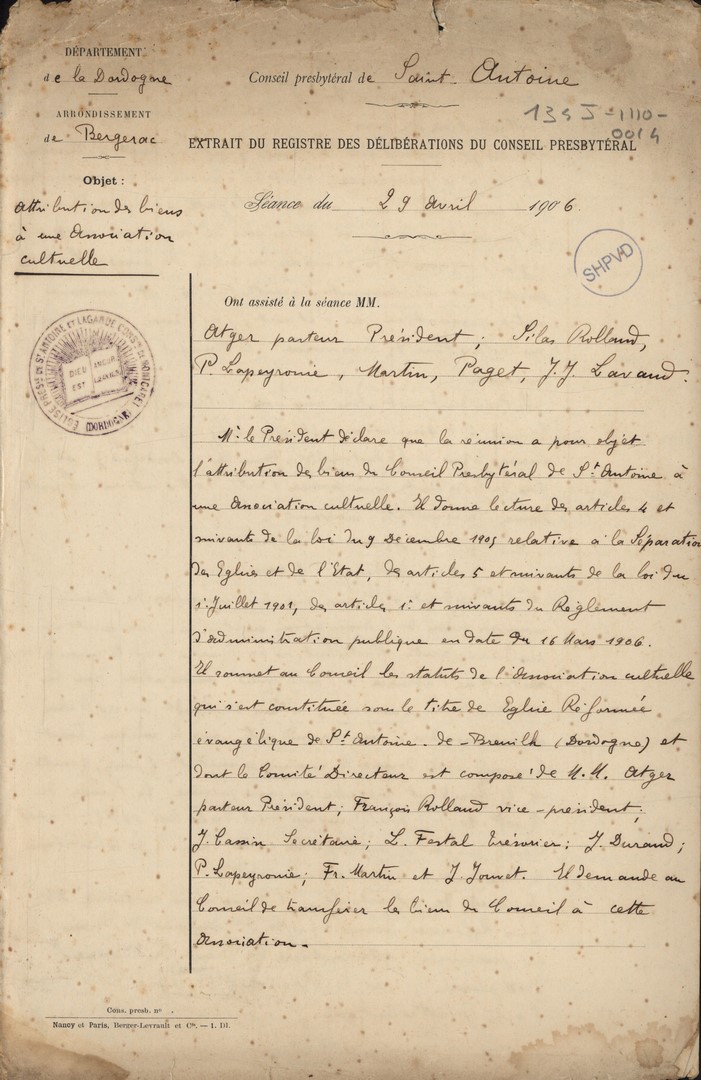 DÉPARTEMENT
de la Dordogne
ARRONDISSEMENT
de Bergerac
Objet :
attribution des biens
à une association
cultuelle
Conseil presbytéral de Saint-Antoine
134 J-1110-
0014
EXTRAIT DU REGISTRE DES DÉLIBÉRATIONS DU CONSEIL PRESBYTÉRAL
Séance du 29 avril 1906.
SHPVD
Ont assisté à la séance MM.
Atger pasteur Président ; Silas Rolland,
P. Lapeyronie, Martin, Paget, J. J. Lavaud.
ÉGLISE PRESle DE St ANTOINE ET LAGARDE CONSre DE MONTCARET
DIEU EST AMOUR
M. le Président déclare que la réunion a pour objet
l'attribution des biens du Conseil Presbytéral de St. Antoine à
une association cultuelle. Il donne lecture des articles 4 et
suivants de la loi du 9 Décembre 1905 relative à la Séparation
des Eglises et de l'Etat, des articles 5 et suivants de la loi du
1er Juillet 1901, des articles 1er et suivants du Règlement
d'administration publique en date du 16 Mars 1906.
Il soumet au Conseil les statuts de l'association cultuelle
qui s'est constituée sous le titre de Eglise Réformée
évangélique de St. Antoine-de-Breuilh (Dordogne) et
dont le Comité Directeur est composé de M.M. Atger
pasteur Président ; François Rolland vice-président ;
J. Cassin Secrétaire ; L. Festal Trésorier ; J. Durand ;
P. Lapeyronie ; Fr. Martin et J. Jouvet. Il demande au
Conseil de transférer les biens du Conseil à cette
association.
Cons. presb. no .
Nancy et Paris, Berger-Levrault et Cie. — 1. Dl.